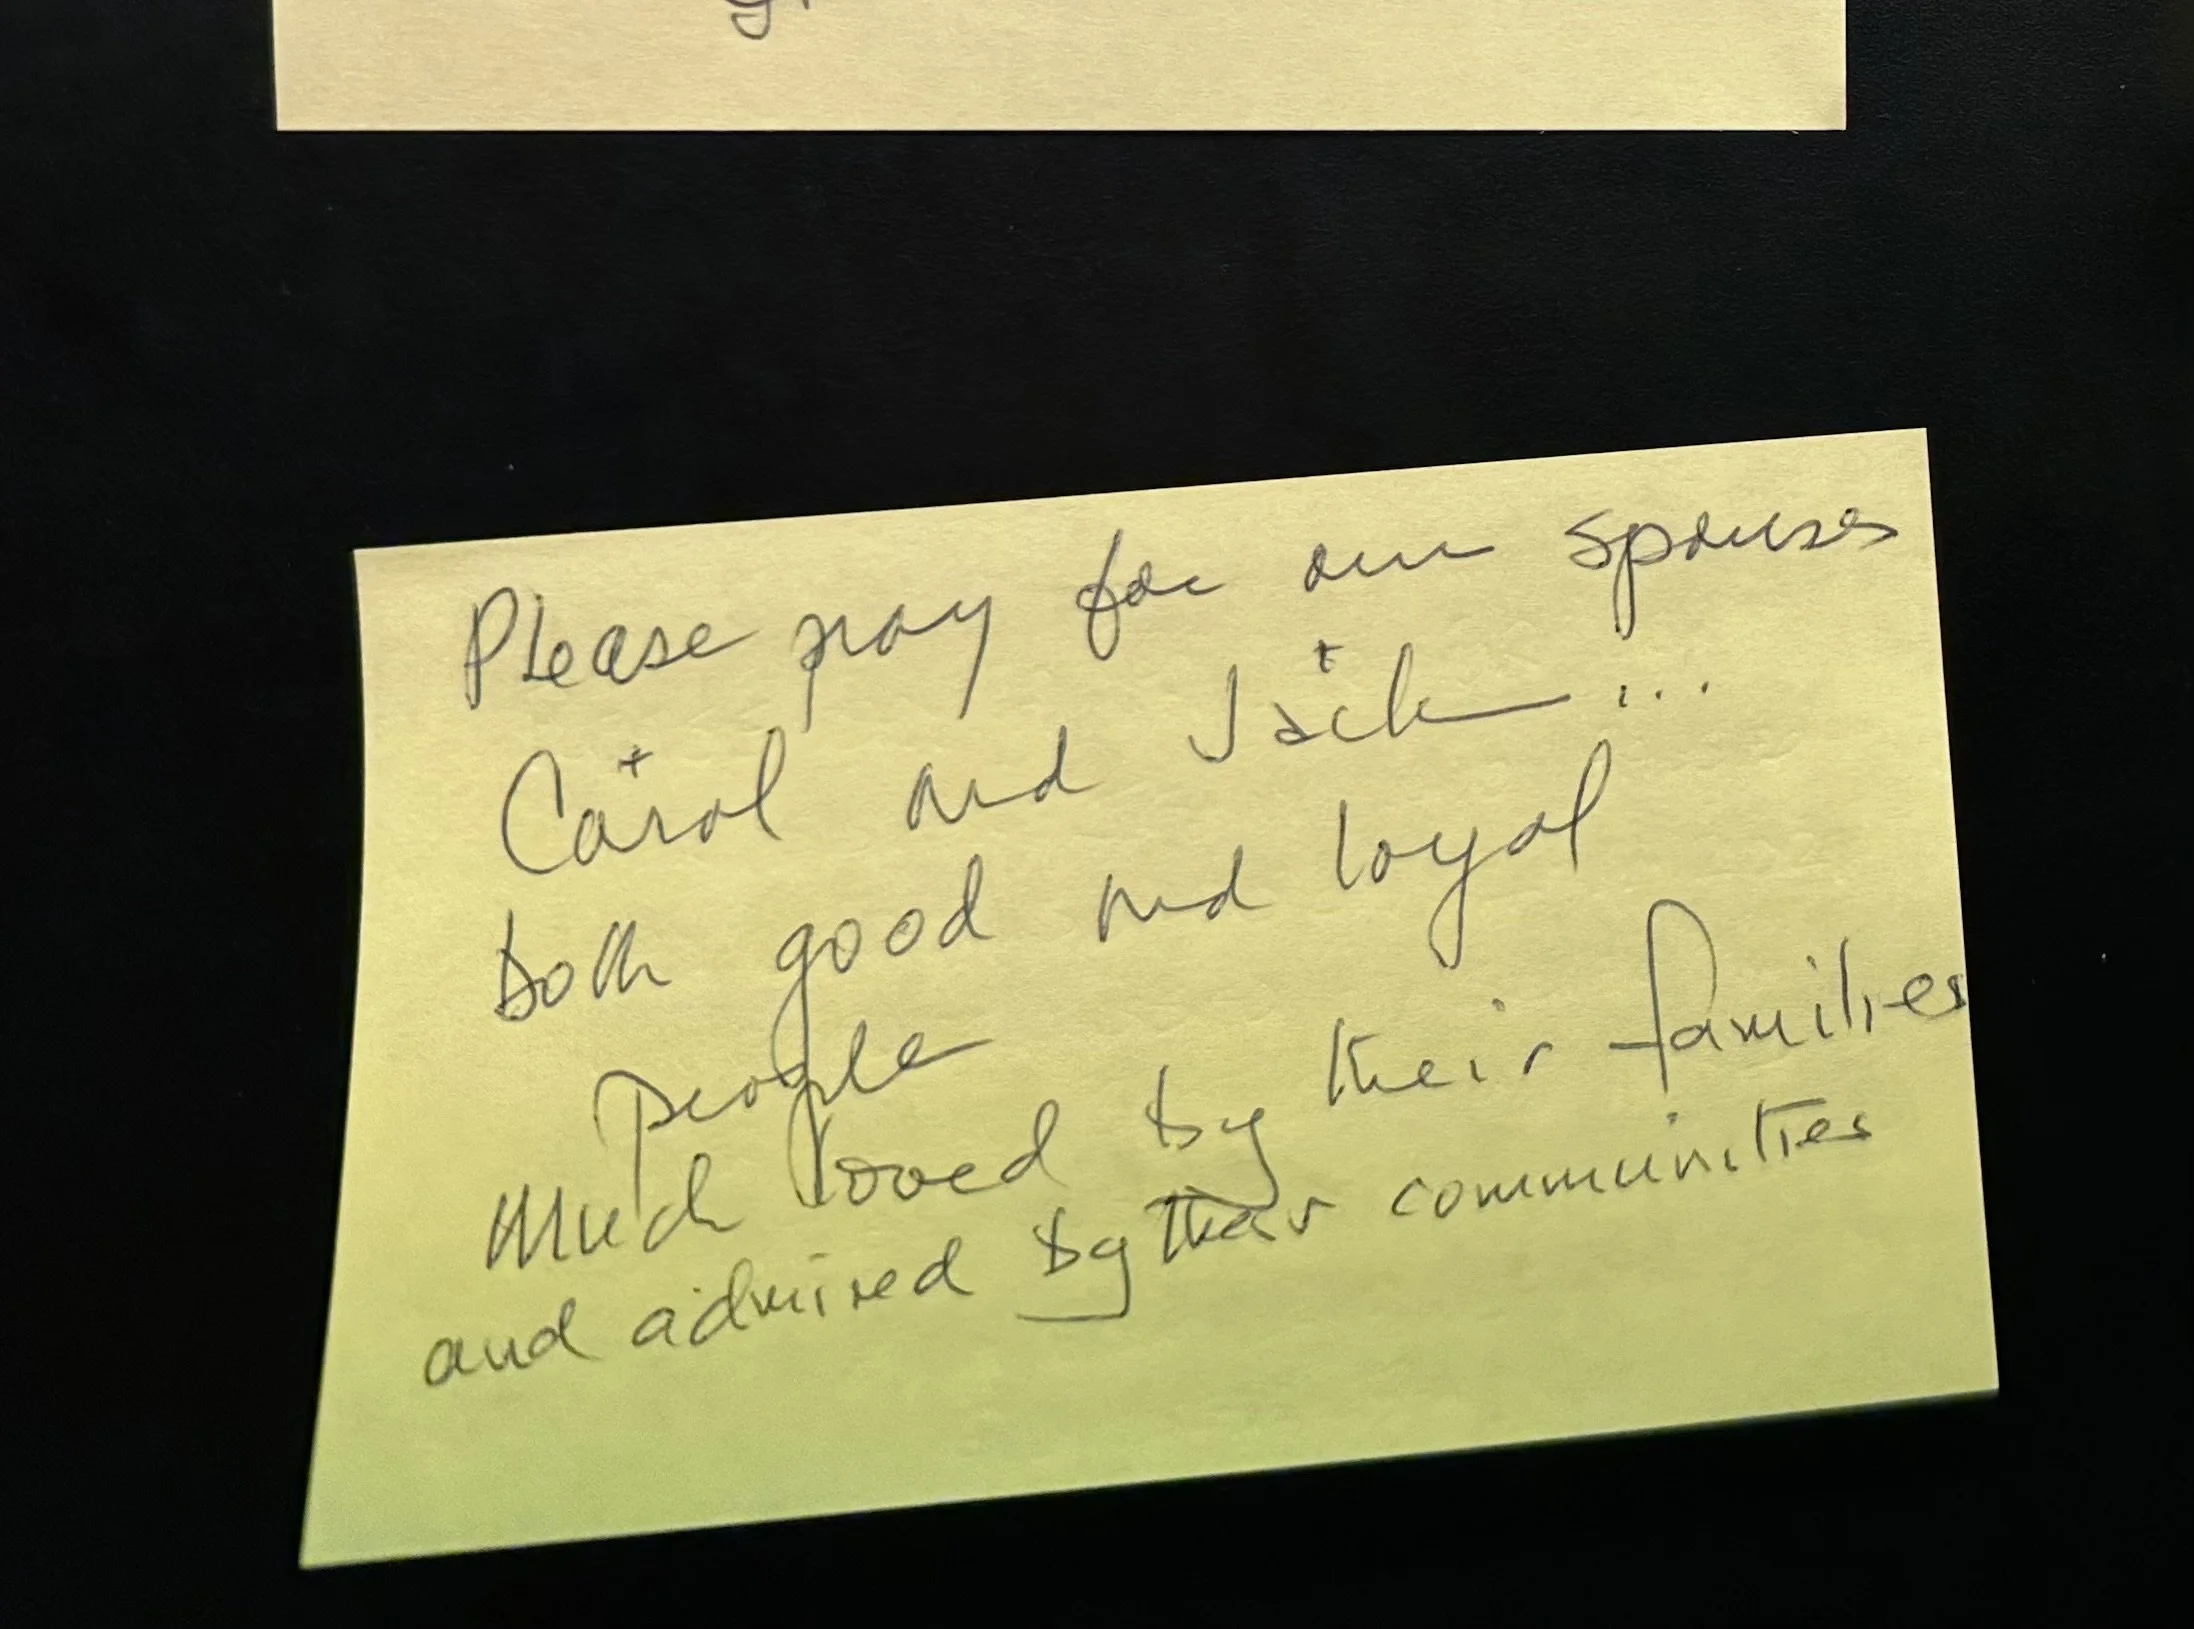 Please pray for our spouses
Carol and Jack...
both good and loyal
people
Much loved by their families
and admired by their communities